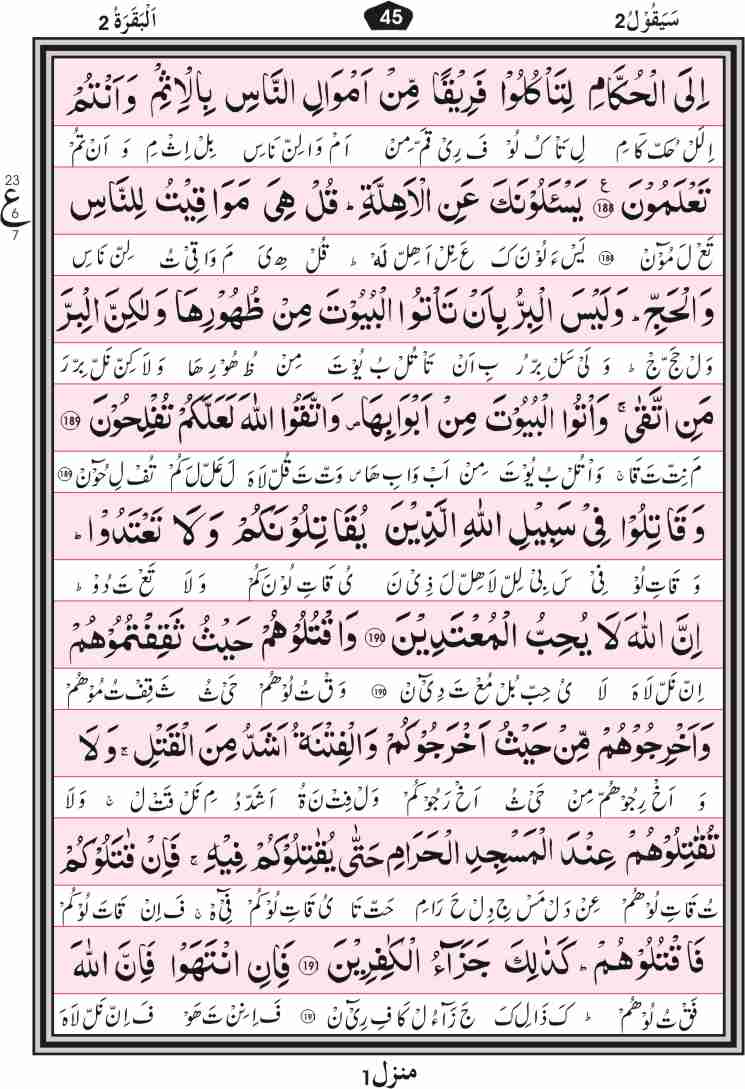 سَيَقُوْلُ 2 45 اَلْبَقَرَةُ 2
اِلَى الْحُكَّامِ لِتَاْكُلُوْا فَرِيْقًا مِّنْ اَمْوَالِ النَّاسِ بِالْاِثْمِ وَاَنْتُمْ
اِلَلْ حُكّ كَامِ لِ تَاْ كُ لُوْ فَ رِىْ قَمّ مِنْ اَمْ وَا لِنّ نَاسِ بِلْ اِثْ مِ وَ اَنْ تُمْ
تَعْلَمُوْنَ ۧ 188 يَسْـَٔلُوْنَكَ عَنِ الْاَهِلَّةِ ؕ قُلْ هِىَ مَوَاقِيْتُ لِلنَّاسِ
تَعْ لَ مُوْٓنْ 188 يَسْ ءَ لُوْ نَ كَ عَ نِلْ اَ هِلّ لَهْ ؕ قُلْ هِىَ مَ وَا قِىْ تُ لِنّ نَاسِ
وَالْحَجِّ ؕ وَلَيْسَ الْبِرُّ بِاَنْ تَاْتُوا الْبُيُوْتَ مِنْ ظُهُوْرِهَا وَلٰكِنَّ الْبِرَّ
وَلْ حَجّ جْ ؕ وَ لَىْ سَلْ بِرّ رُ بِ اَنْ تَاْ تُلْ بُ يُوْتَ مِنْ ظُ هُوْ رِ هَا وَ لَا كِنّ نَلْ بِرّ رَ
مَنِ اتَّقٰى ۚ وَاْتُوا الْبُيُوْتَ مِنْ اَبْوَابِهَا ۪ وَاتَّقُوا اللّٰهَ لَعَلَّكُمْ تُفْلِحُوْنَ 189
مَ نِتّ تَ قَا ۚ وَاْ تُلْ بُ يُوْتَ مِنْ اَبْ وَا بِ هَا ۪ وَتّ تَ قُلّ لَا هَ لَ عَلّ لَ كُمْ تُفْ لِ حُوْٓنْ 189
وَقَاتِلُوْا فِىْ سَبِيْلِ اللّٰهِ الَّذِيْنَ يُقَاتِلُوْنَكُمْ وَلَا تَعْتَدُوْا ؕ
وَ قَاتِ لُوْ فِىْ سَ بِىْ لِلّ لَا هِلّ لَ ذِىْ نَ يُ قَاتِ لُوْ نَ كُمْ وَ لَا تَعْ تَ دُوْ ؕ
اِنَّ اللّٰهَ لَا يُحِبُّ الْمُعْتَدِيْنَ 190 وَاقْتُلُوْهُمْ حَيْثُ ثَقِفْتُمُوْهُمْ
اِنّ نَلّ لَا هَ لَا يُ حِبّ بُلْ مُعْ تَ دِىْٓ نْ 190 وَقْ تُ لُوْ هُمْ حَىْ ثُ ثَ قِفْ تُ مُوْ هُمْ
وَاَخْرِجُوْهُمْ مِّنْ حَيْثُ اَخْرَجُوْكُمْ وَالْفِتْنَةُ اَشَدُّ مِنَ الْقَتْلِ ۚ وَلَا
وَ اَخْ رِجُوْ هُمّ مِنْ حَىْ ثُ اَخْ رَجُوْ كُمْ وَلْ فِتْ نَ ةُ اَ شَدّ دُ مِ نَلْ قَتْ لْ ۚ وَ لَا
تُقٰتِلُوْهُمْ عِنْدَ الْمَسْجِدِ الْحَرَامِ حَتّٰى يُقٰتِلُوْكُمْ فِيْهِ ۚ فَاِنْ قٰتَلُوْكُمْ
تُ قَاتِ لُوْ هُمْ عِنْ دَلْ مَسْ جِ دِلْ حَ رَامِ حَتّ تَا يُ قَاتِ لُوْ كُمْ فِىْٓ هْ ۚ فَ اِنْ قَاتَ لُوْ كُمْ
فَاقْتُلُوْهُمْ ؕ كَذٰلِكَ جَزَآءُ الْكٰفِرِيْنَ 191 فَاِنِ انْتَهَوْا فَاِنَّ اللّٰهَ
فَقْ تُ لُوْ هُمْ ؕ كَ ذَا لِ كَ جَ زَآءُ لْ كَا فِ رِىْٓ نْ 191 فَ اِ نِنْ تَ هَوْ فَ اِنّ نَلّ لَا هَ
منزل 1
23
ع
6
7